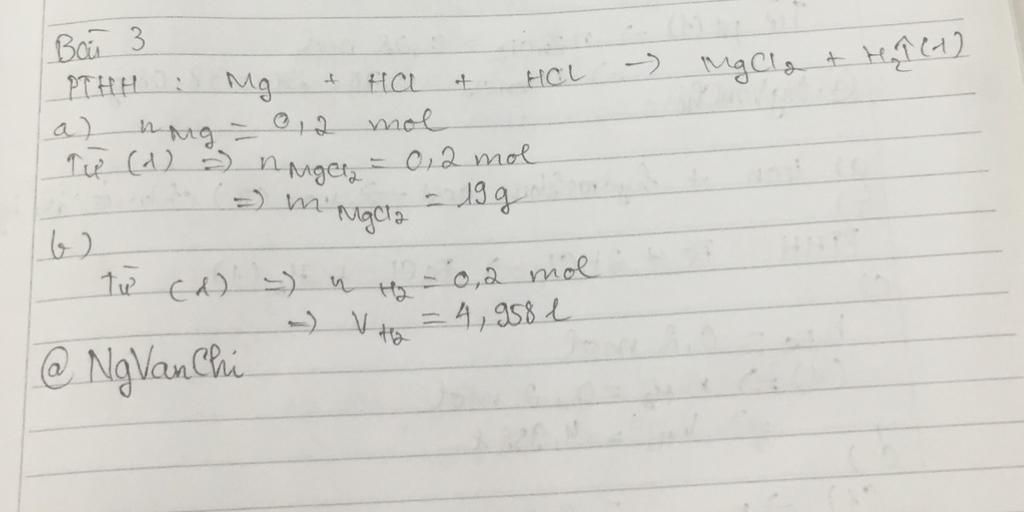 Bài 3
PTHH : Mg + HCl + HCl → MgCl₂ + H₂↑(1)
a) nMg = 0,2 mol
Từ (1) => nMgCl₂ = 0,2 mol
=> mMgCl₂ = 19g
b)
Từ (1) => nH₂ = 0,2 mol
=> VH₂ = 4,958 l
@NgVanChi